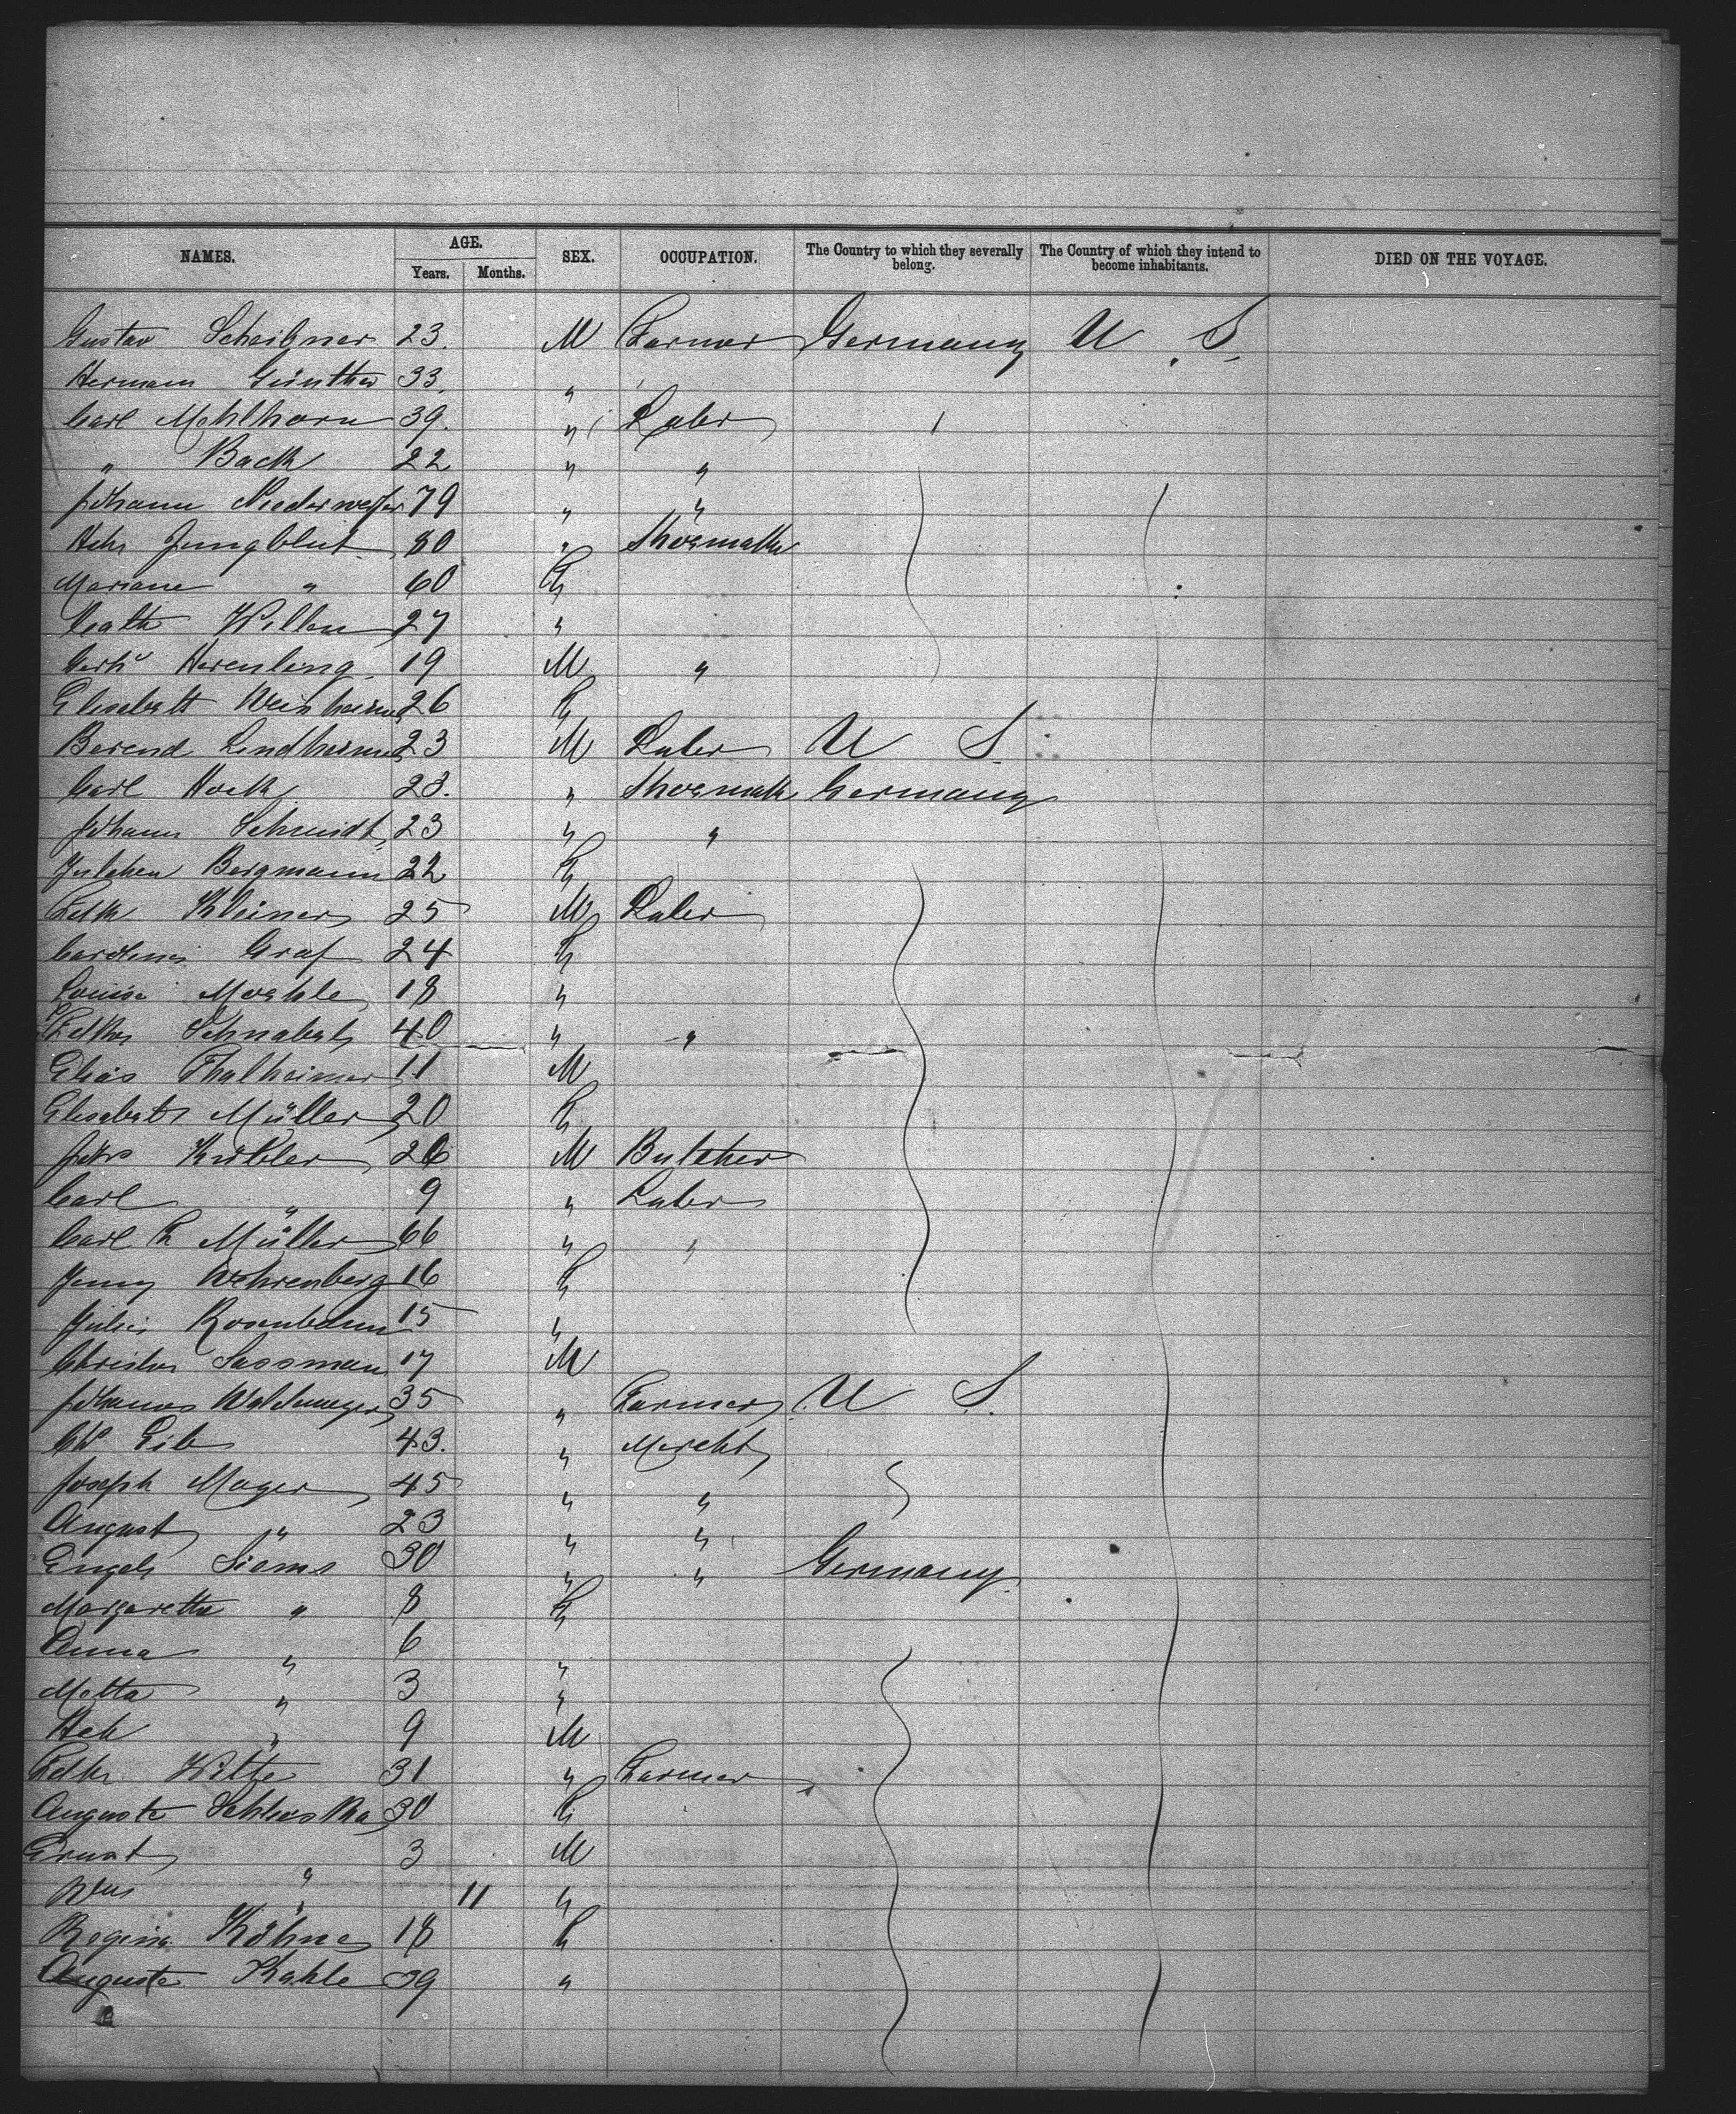 NAMES. AGE. SEX. OCCUPATION. The Country to which they severally belong. The Country of which they intend to become inhabitants. DIED ON THE VOYAGE.
Years. Months.
Gustav Scheibner 23. M Farmer Germany U. S.
Hermann Günther 33. "
Carl Mehlhorn 39. " Labr
" Back 22 " "
Johann 79 " "
Hch Jungblut 80 " Shoemaker
Mariane " 60 F
Cath Willen 27 "
19 M "
Elisabeth Weinheimer 26 F
Berend Lindheimer 23 M Labr U S.
Carl Hock 23. " Shoemak Germany
Johann Schmidt 23 " "
Julchen Bergmann 22 F
Fedk Kleiner 25 M Labr
Caroline Graf 24 F
Louise 18 "
Schnabel 40 " "
Elias Thalheimer 11 M
Elisabeth Müller 20 F
Johs Kübler 26 M Butcher
Carl " 9 " Labr
Carl F Müller 66 " "
Jenny Wehrenberg 16 F
Julie Rosenbaum 15 "
Christian Sassman 17 M
Johannes 35 " Farmer U S.
43. " Mercht
Joseph Mayer 45 " "
August " 23 " "
Engel Siems 30 " " Germany
Margaretha " 8 F
Anna " 6 "
Metta " 3 "
Hch " 9 M
Fedk Witte 31 " Farmer
Auguste 30 F
Ernst " 3 M
" 11 "
Regina Köhne 18 F
Auguste Kahle 39 "